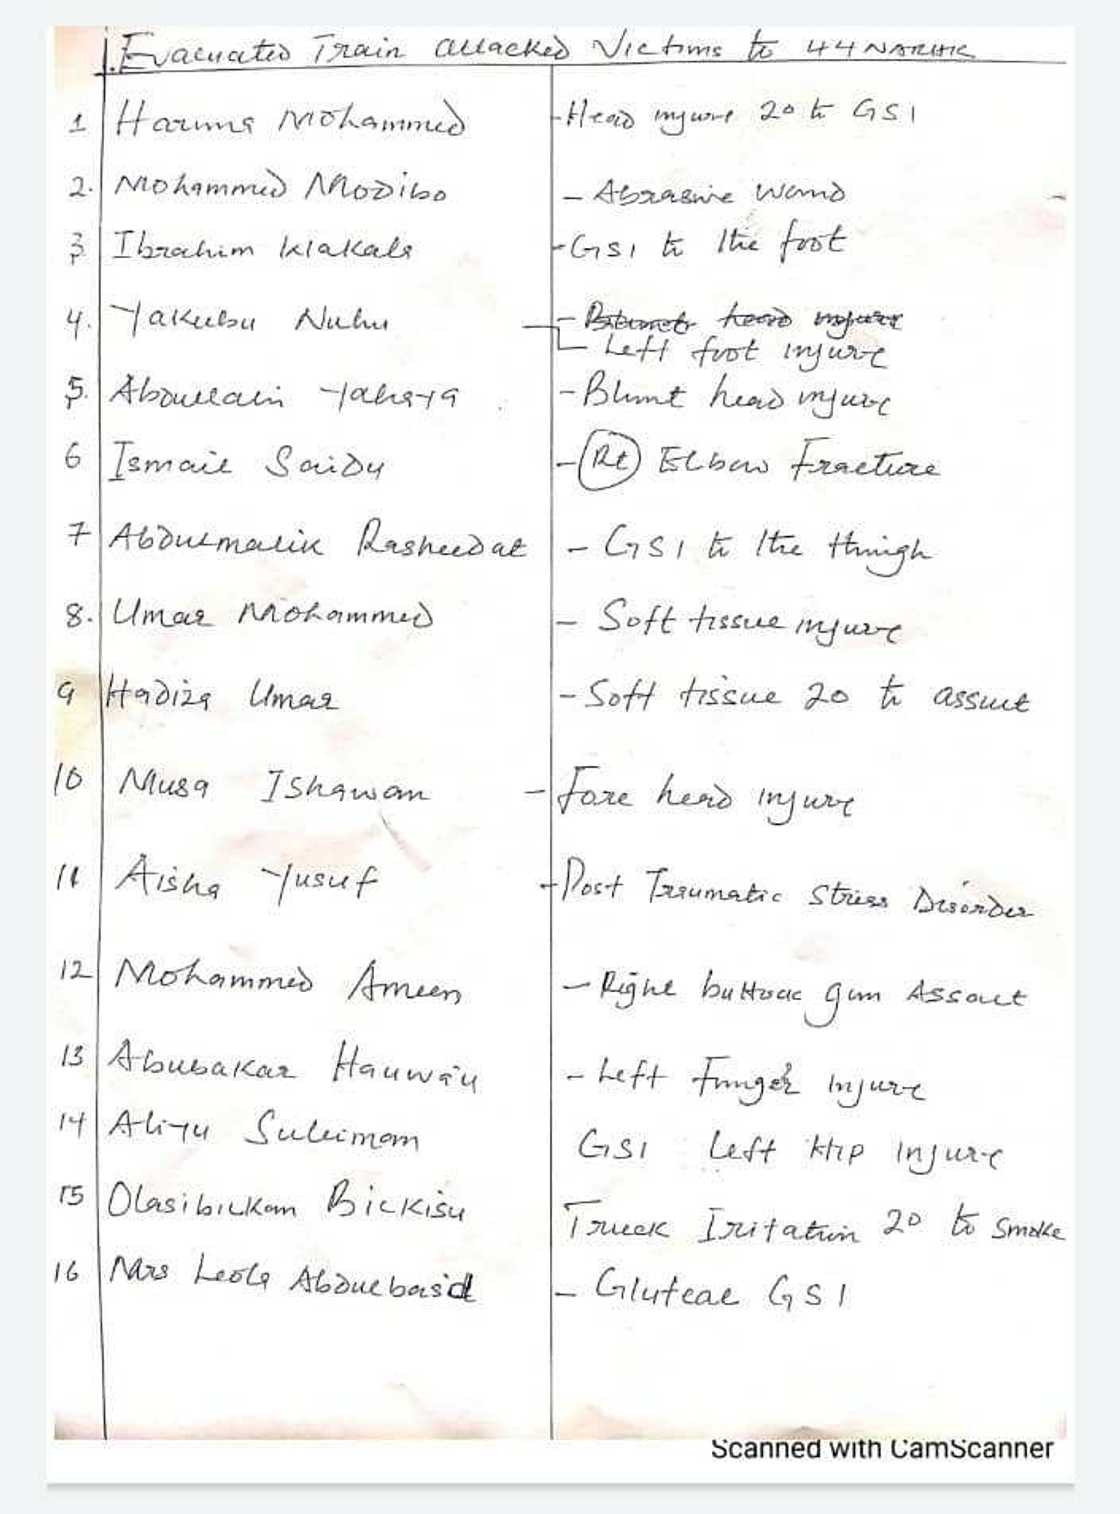 1. Evacuated Train attacked Victims to 44NARHK
1 Haruna Mohammed - Head injure 20 to GSI
2. Mohammed Modibo - Abrasive wond
3 Ibrahim Wakala - GSI to the foot
4. Yakubu Nuhu - Blunt head injure
Left foot injure
5. Abdullahi Yahaya - Blunt head injure
6 Ismail Saidu - (Rt) Elbow Fracture
7 Abdulmalik Rasheedat - GSI to the thingh
8. Umar Mohammed - Soft tissue injure
9 Hadiza Umar - Soft tissue 20 to assult
10 Musa Ishawan - Fore head injure
11 Aisha Yusuf - Post Traumatic Stress Disorder
12 Mohammed Ameen - Right buttoac gun Assault
13 Abubakar Hauwa'u - Left Funger injure
14 Aliyu Suleiman GSI Left Hip injure
15 Olasibikan Bickisu Truck Iritation 20 to smoke
16 Mrs Leola Abdulbasid - Gluteal GSI
Scanned with CamScanner